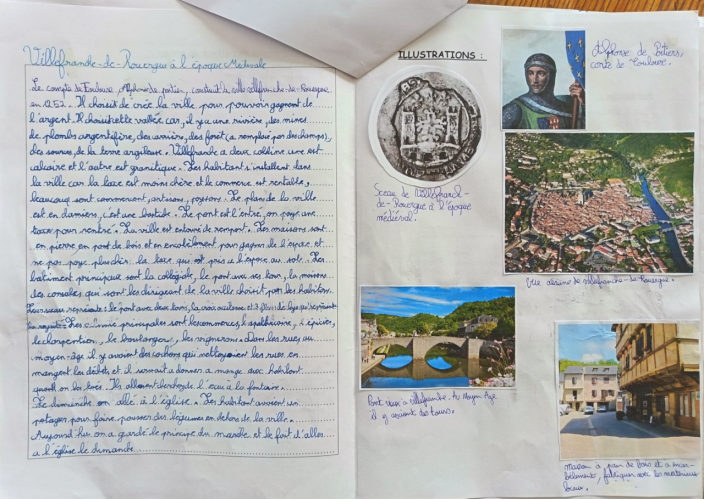 Villefranche-de-Rouergue à l'époque Médiévale
Le compte de Toulouse, Alphonse de potier, construit la ville villefranche-de-Rouergue
en 1252. Il choisit de crée la ville pour pouvoir gagner de
l'argent. Il choisit cette vallée car, il y a une rivière, des mines
de plombs argentifère, des carrière, des forêt (a remplacé par des champs),
des sources, de la terre argileux. Villefranche a deux colline une est
calcaire et l'autre est granitique. Les habitant s'installent dans
la ville car la taxe est moins chère et le commerce est rentable,
beaucoup sont commerçant, artisans, paysans. Le plan de la ville
est en damiers, c'est une bastide. Le pont est l'entré, on paye une
taxe pour rentré. La ville est entouré de rempart. Les maisons sont
en pierre, en pant de bois et en encorbellement pour gagner de l'espace et
ne pas paye plus cher la taxe, qui est pris a l'espace au sol. Les
bâtiment principaux sont la collégiale, le pont avec ses tours, la maison
des consules qui sont les dirigeant de la ville choisit par les habitan.
Leur sceau représente : le pont avec deux tours, la croix occitane et 3 fleurs de lys qui représente
la royauté. Les principales sont les commerces, l'apothicaire, l'épicier,
le charpentier, le boulanger, les vignerons. Dans les rues au
moyen-âge il y avaient des cochons qui nettoyaient les rues en
mangeant les déchets et il servait a donner a mangé aux habitant
quand on les tués. Ils allaient cherché de l'eau à la fontaine.
Le dimanche on allé à l'église. Les habitant avaient un
potager pour faire pousser des légumes en dehors de la ville.
Aujourd'hui on a gardé le principe du marché et le fait d'aller
a l'église le dimanche
ILLUSTRATIONS :
Alphonse de Poitiers,
comte de Toulouse.
Sceau de Villefranche-
de-Rouergue à l'époque
médiéval.
Vue aérienne de villefranche-de-Rouergue.
Pont vieux a villefranche. Au Moyen Age
il y avaient des tours.
maison a pan de bois et a encor-
bellements, fabriquer avec les matériaux
locaux.